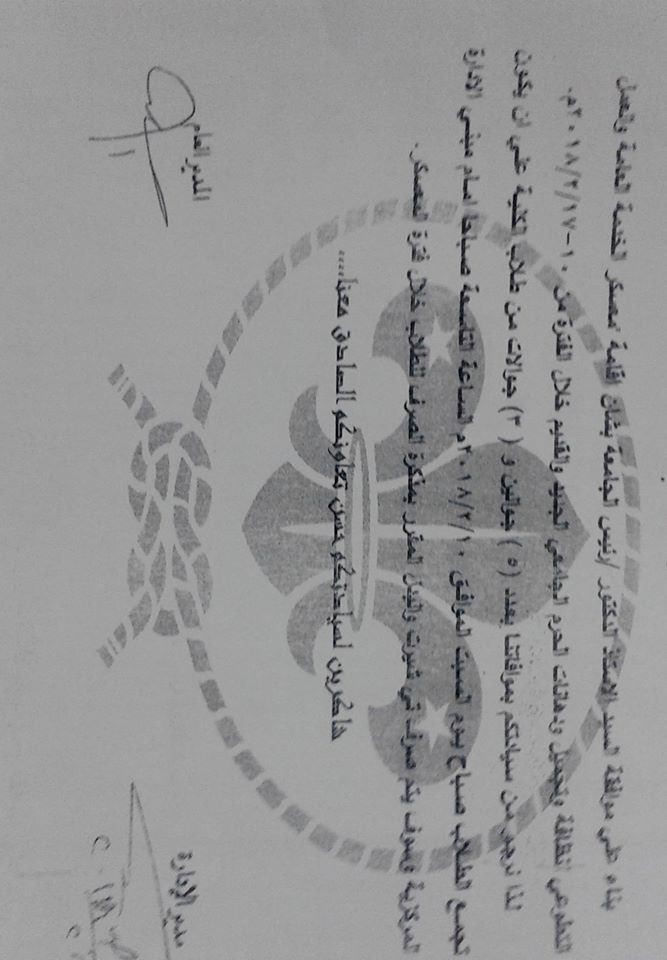 بناء علي موافقة السيد الاستاذ الدكتور /رئيس الجامعة بشان اقامة معسكر الخدمة العامة والعمل
التطوعي لنظافة وتجميل ودهانات الحرم الجامعي الجديد والقديم خلال الفترة من ١٠-٢٠١٨/٢/١٧م.
لذا نرجو من سيادتكم بموافاتنا بعدد (٥) جوالين و (٣) جوالات من طلاب الكلية علي ان يكون
تجمع الطلاب صباح يوم السبت الموافق ٢٠١٨/٢/١٠م الساعة التاسعة صباحا امام مبني الادارة
المركزية وسوف يتم صرف تي شيرت والبدل المقرر بمذكرة الصرف للطلاب خلال فترة المعسكر.
شاكرين لسيادتكم حسن تعاونكم الصادق معنا....
مدير الإدارة
المدير العام